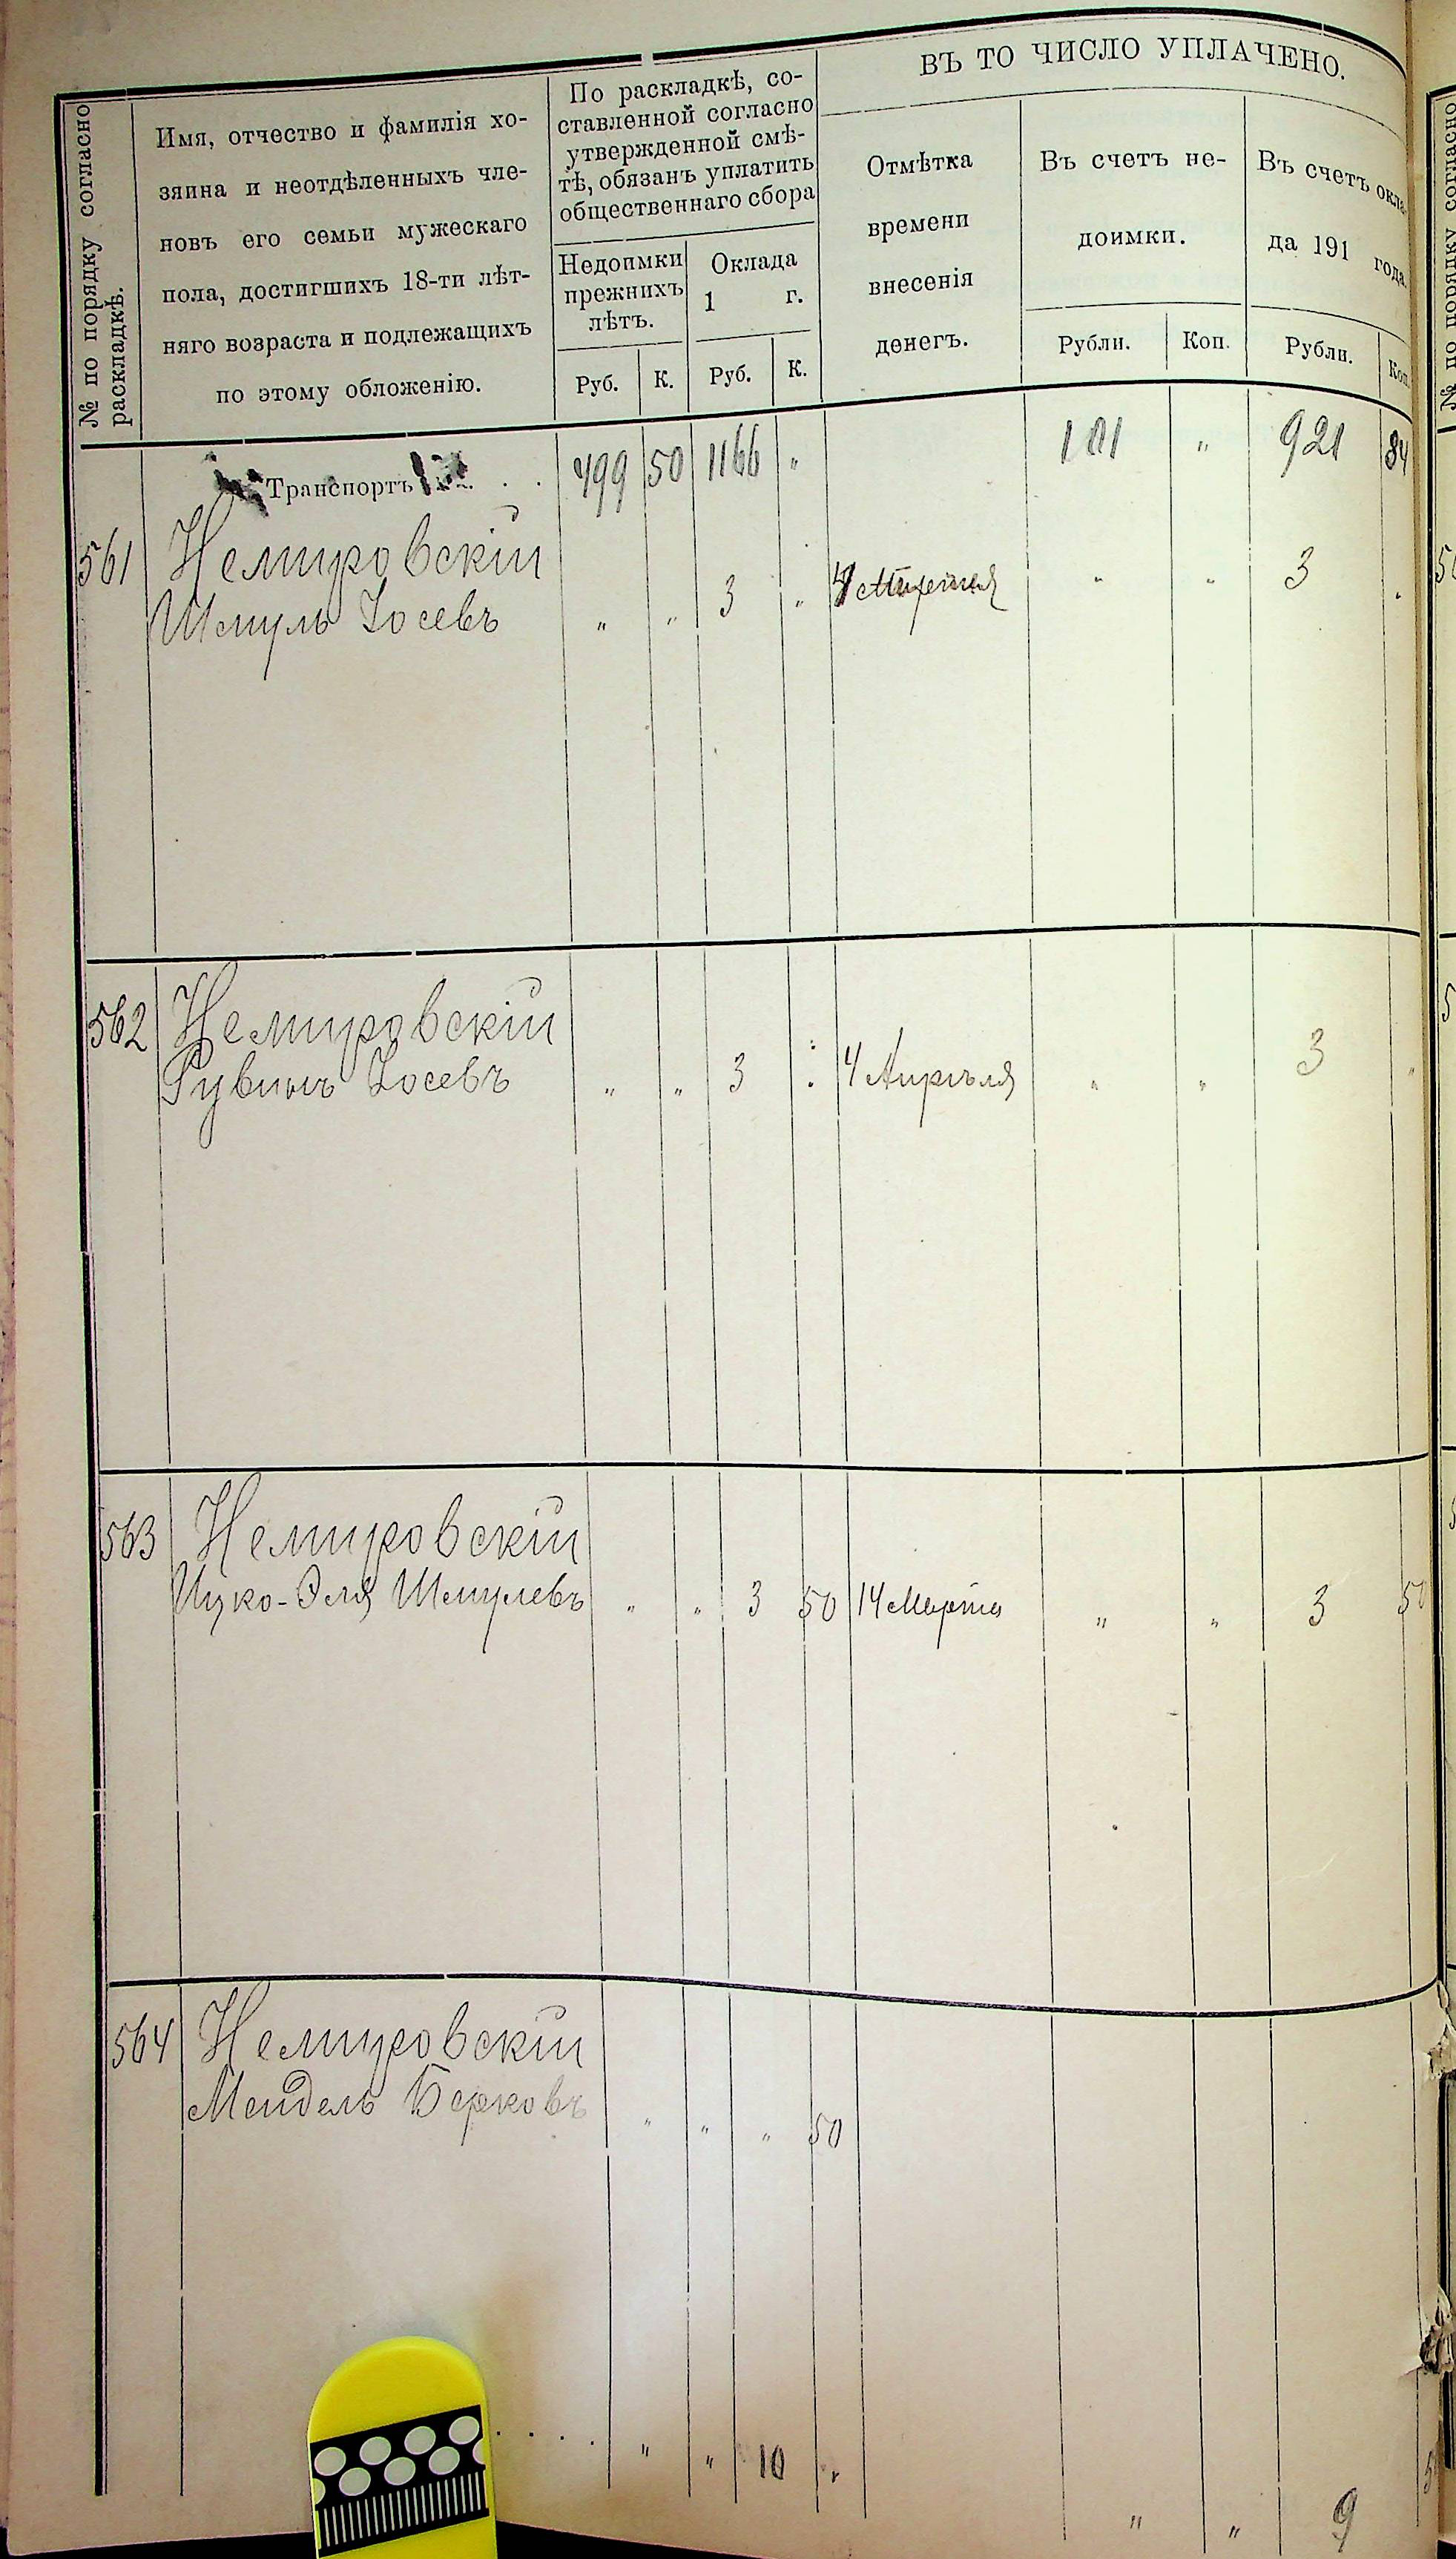 № по порядку согласно
раскладкѣ.
Имя, отчество и фамилія хо-
зяина и неотдѣленныхъ чле-
новъ его семьи мужескаго
пола, достигшихъ 18-ти лѣт-
няго возраста и подлежащихъ
по этому обложенію.
По раскладкѣ, со-
ставленной согласно
утвержденной смѣ-
тѣ, обязанъ уплатить
общественнаго сбора
Недоимки
прежнихъ
лѣтъ.
Руб. К.
Оклада
1 г.
Руб. К.
ВЪ ТО ЧИСЛО УПЛАЧЕНО.
Отмѣтка
времени
внесенія
денегъ.
Въ счетъ не-
доимки.
Рубли. Коп.
Въ счетъ окла-
да 191 года.
Рубли. Коп.
Транспортъ . . 499 50 1166 " 101 " 921 84
561 Немировскій
Шмуль Іосевъ " " 3 " 4 " " 3 "
562 Немировскій
Рувинъ Іосевъ " " 3 : 4 Апрѣля " " 3 "
563 Немировскій
Ицко-Эля Шмулевъ " " 3 50 14 Марта " " 3 50
564 Немировскій
Мендель Берковъ " " " 50
. . . . " " 10 " " " 9
№ по порядку согласно